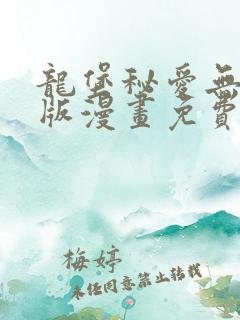 龍堡秘愛無
版漫畫免費
梅婷
未经同意禁止转载